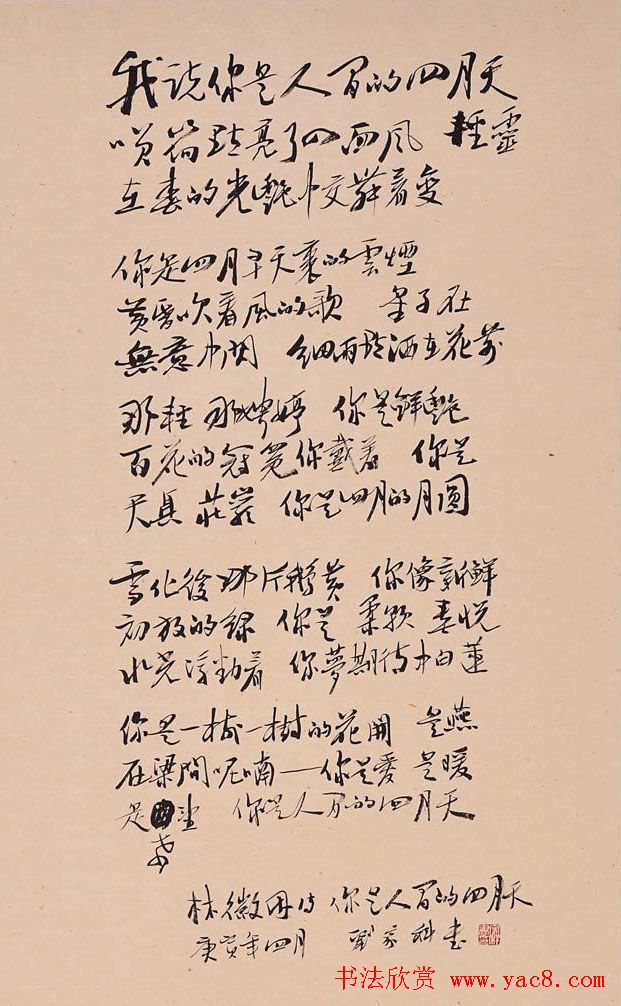 我说你是人间的四月天
笑荷點亮了四面风 輕靈
在春的光艷中交舞着变
你是四月早天裏的雲煙
黄昏吹着風的歌 星子在
無意中閃 细雨點洒在花前
那輕 那娉婷 你是鲜艷
百花的冠冕你戴着 你是
天真 莊嚴 你是四月的月圆
雪化後那片鹅黄 你像新鮮
初放的绿 你是 柔嫩 喜悦
水光浮動着 你夢期待中白蓮
你是一树一树的花開 是燕
在梁間呢喃——你是爱 是暖
是希望 你是人间的四月天
林徽因诗 你是人間的四月天
庚寅年四月 劉家科书
书法欣赏 www.yac8.com